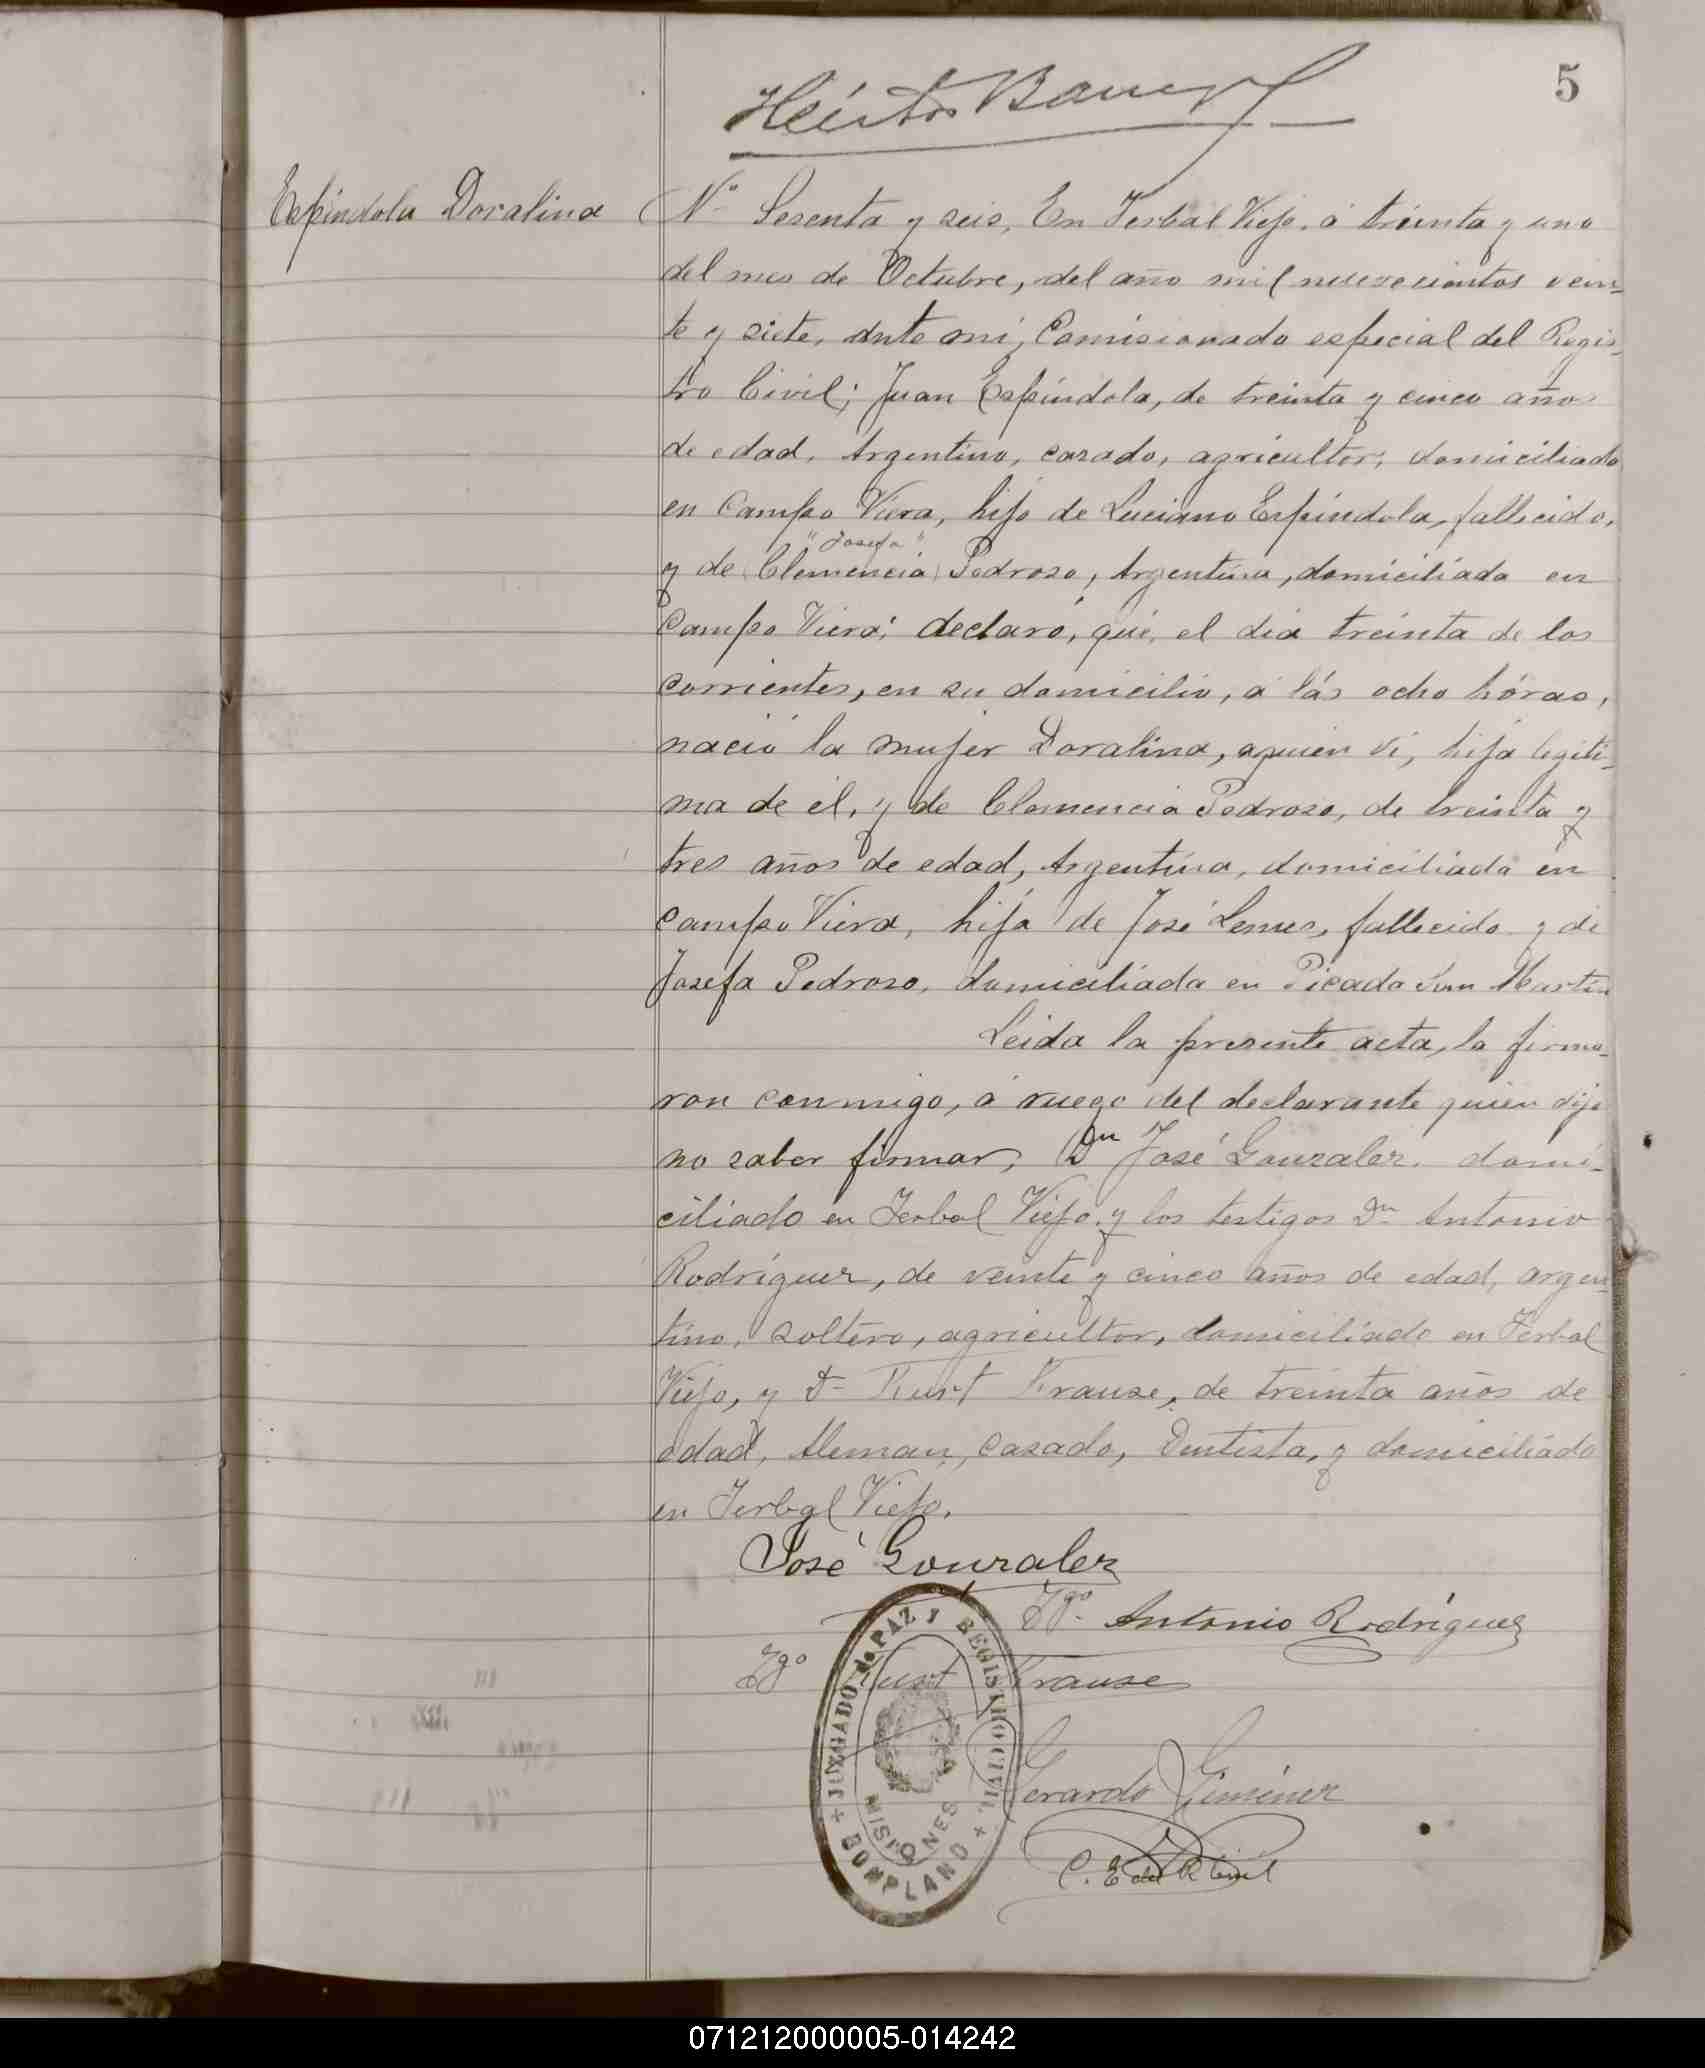 5
Héctor
Espíndola Doralina
Nº Sesenta y seis, En Yerbal Viejo, á treinta y uno
del mes de Octubre, del año mil nuevecientos vein-
te y siete, ante mi, Comisionado especial del Regis-
tro Civil; Juan Espíndola, de treinta y cinco años
de edad, Argentino, casado, agricultor, domiciliado
en Campo Viera, hijo de Luciano Espíndola, fallecido,
"Josefa"
y de (Clemencia) Pedroso, Argentina, domiciliada en
Campo Viera; declaró, que, el día treinta de los
corrientes, en su domicilio, á lás ocho hóras,
nació la mujer Doralina, aquien ví, hija legíti-
ma de él, y de Clemencia Pedroso, de treinta y
tres años de edad, Argentina, domiciliada en
Campo Viera, hija de José Lemes, fallecido y de
Josefa Pedroso, domiciliada en Picada San Martín
Leida la presente acta, la firma-
ron conmigo, á ruego del declarante quien dijo
no saber firmar, Dn José Gonzalez, domi-
ciliado en Yerbal Viejo, y los testigos Dn Antonio
Rodríguez, de veinte y cinco años de edad, argen-
tino, soltero, agricultor, domiciliado en Yerbal
Viejo, y Dn Kurt Krause, de treinta años de
edad, Aleman, casado, Dentista, y domiciliado
en Yerbal Viejo.
José Gonzalez
Tgo. Antonio Rodríguez
Tgo Kurt Krause
Gerardo Giménez
C. E del R Civil
JUZGADO de PAZ y REGISTRO CIVIL
MISIONES
+ BONPLAND +
071212000005-014242